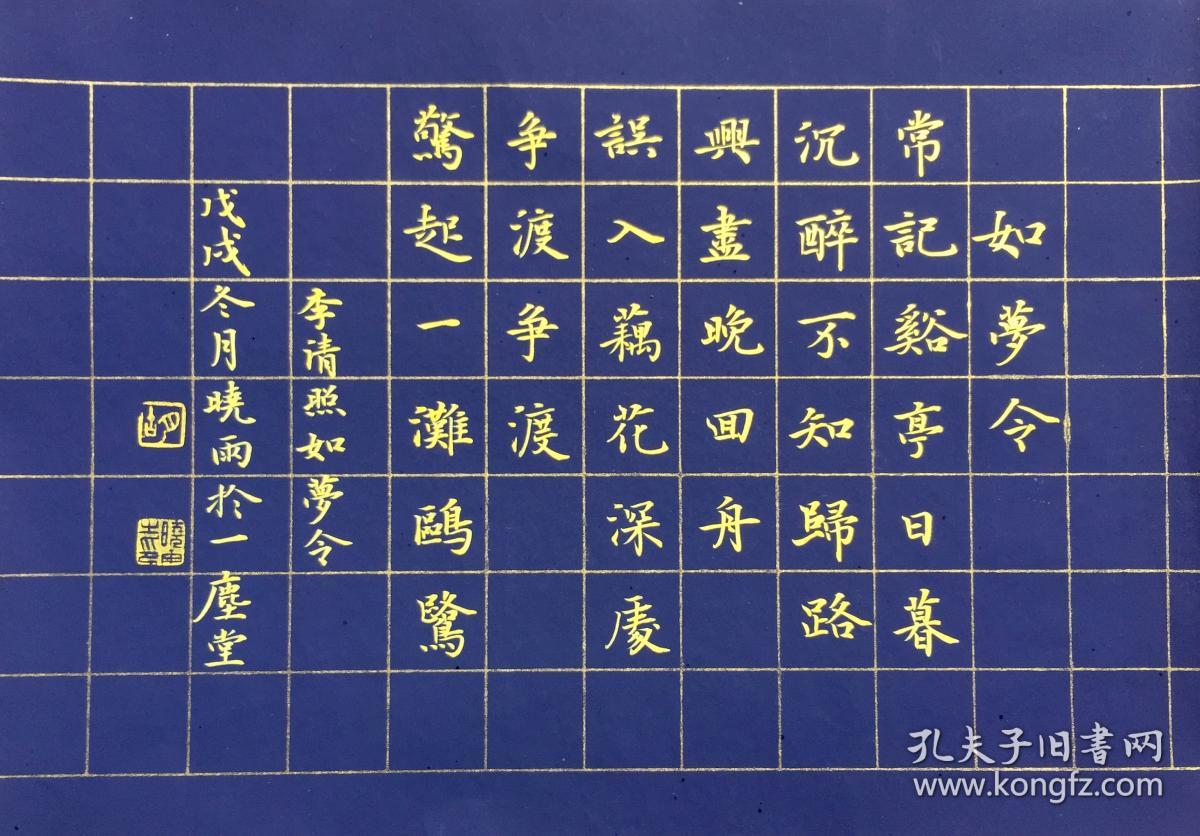 如夢令
常記谿亭日暮
沉醉不知歸路
興盡晚回舟
誤入藕花深處
爭渡爭渡
驚起一灘鷗鷺
李清照如夢令
戊戌冬月曉雨於一塵堂
孔夫子旧書网
www.kongfz.com